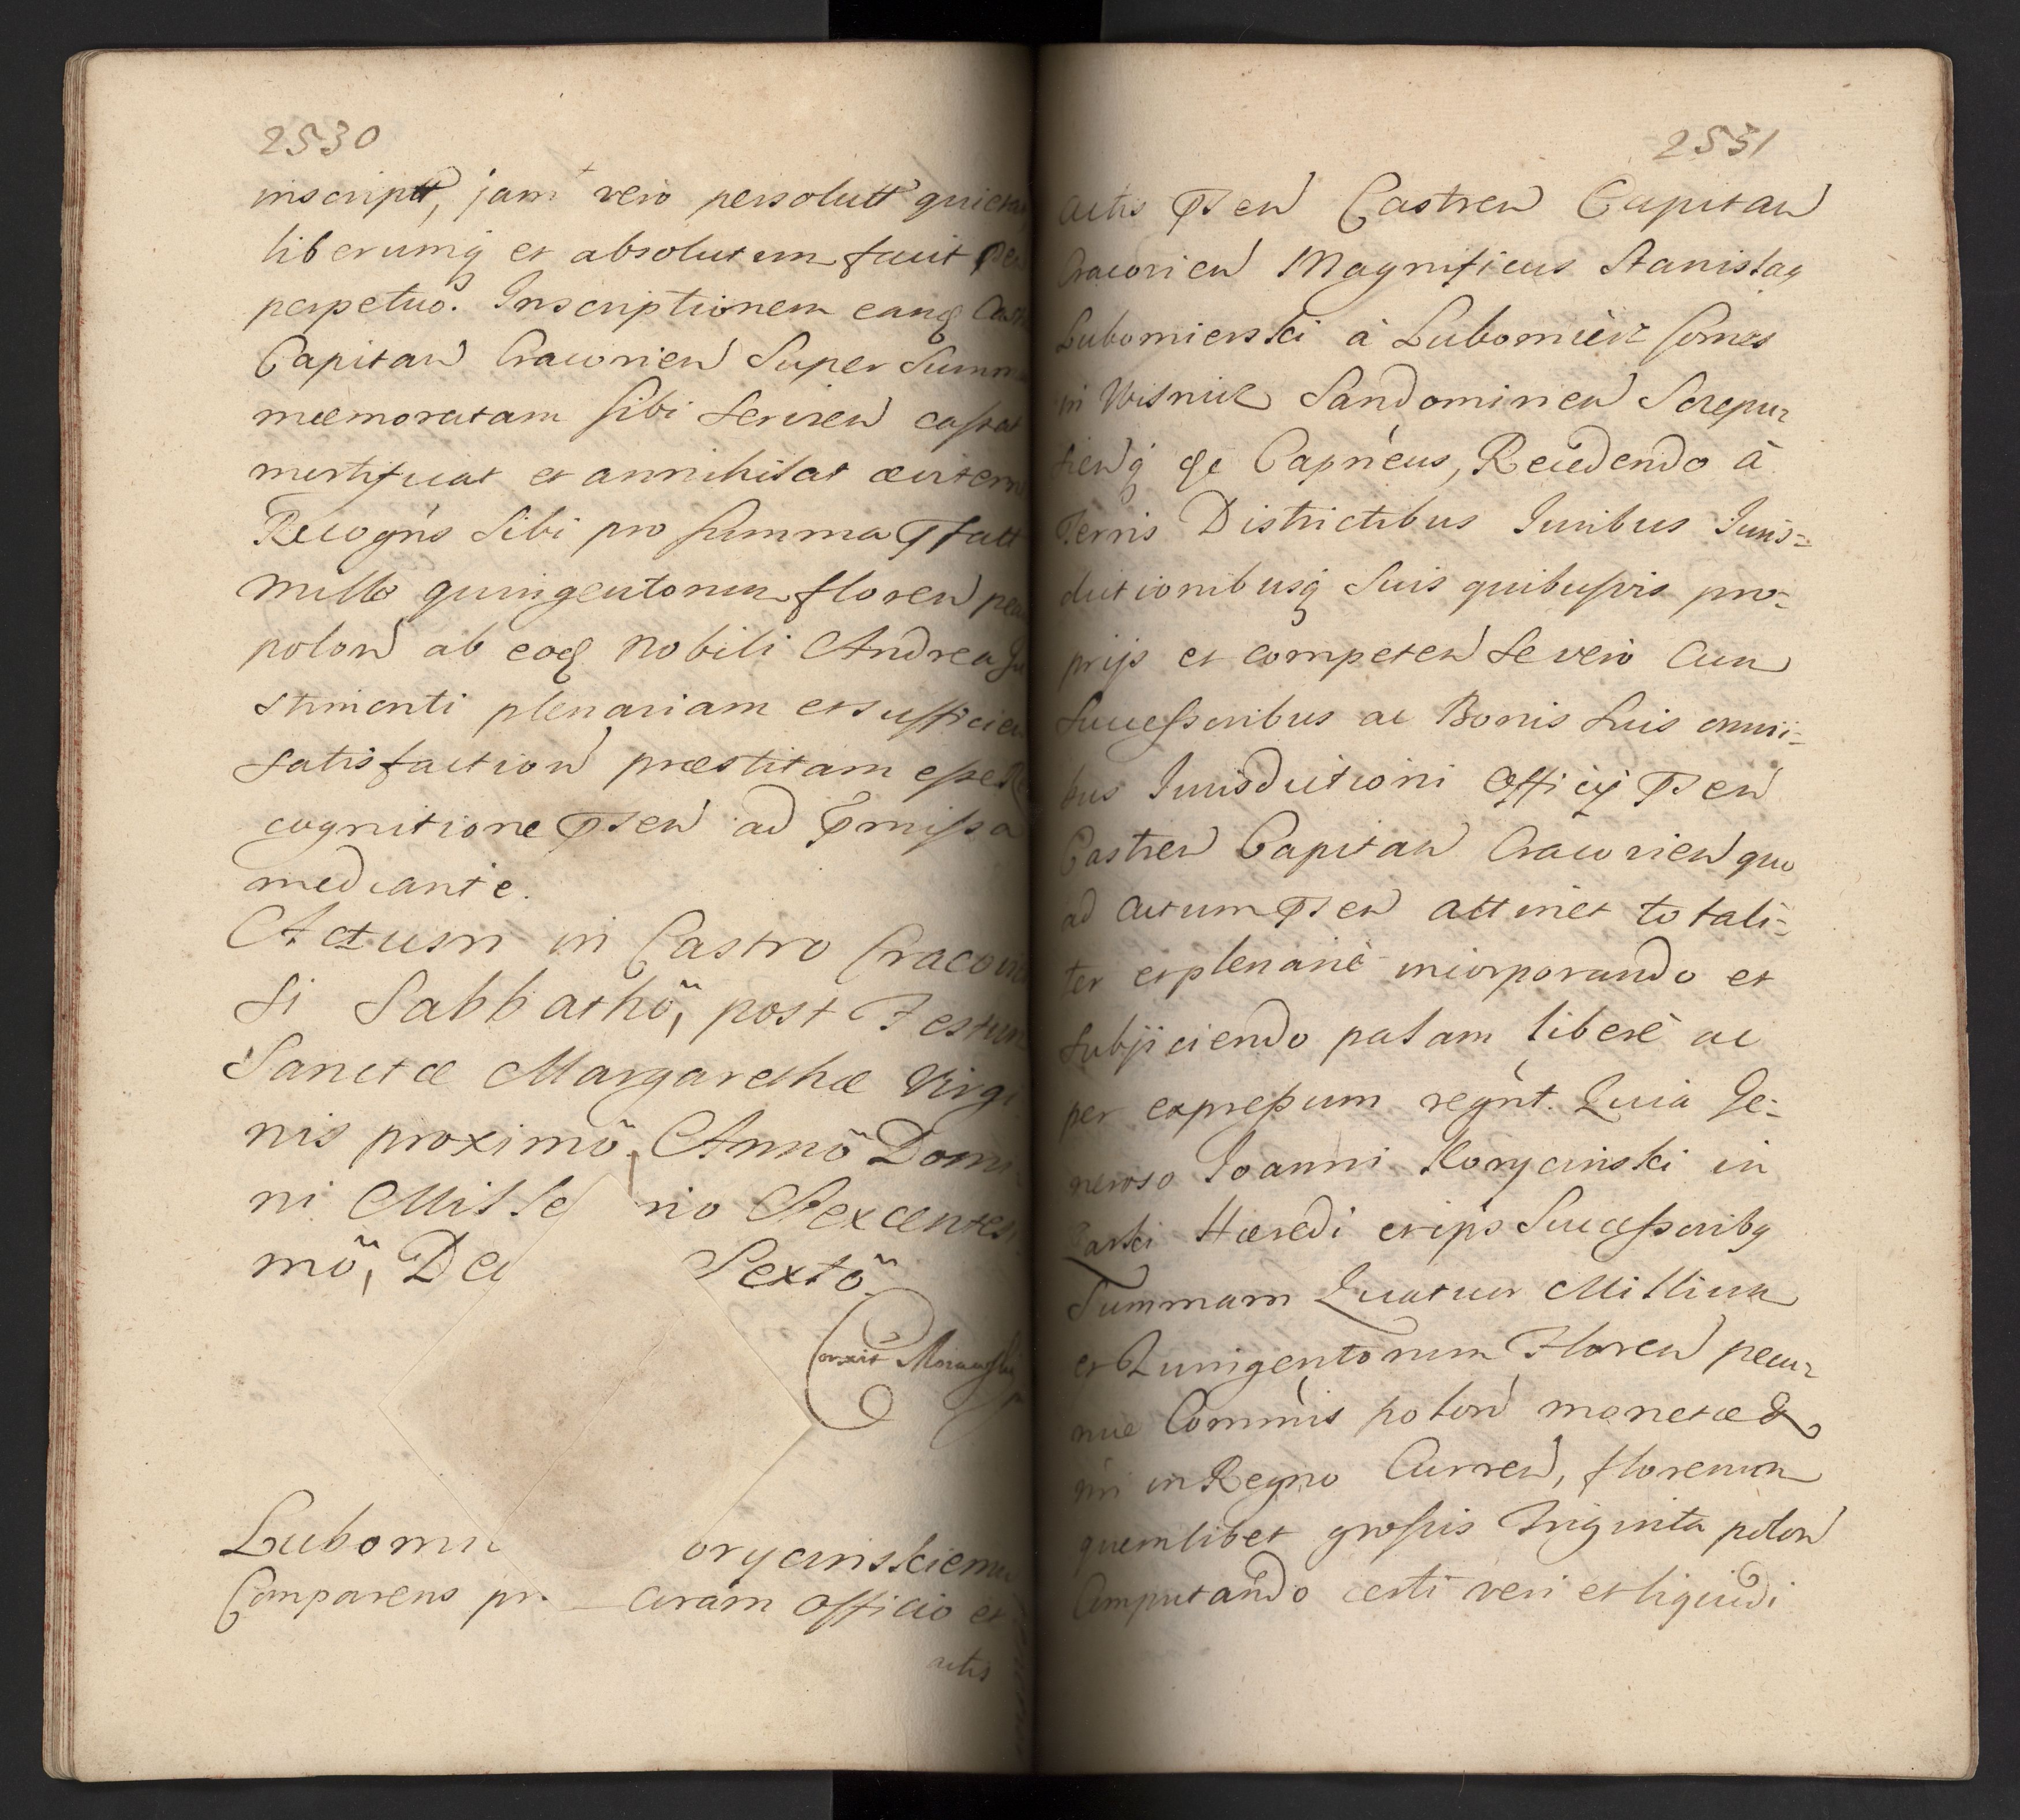 2530
inscriptt, jam vero persolutt quietat
liberumq et absolutum facit pen
perpetuo. Inscriptionem eanq Cast
Capitan Cracovien Super Summ
mæmoratam sibi servien cassat
mortificat et annihilat æviterne
Recogns sibi pro summa pfatt
mille quingentorum floren pecu
polon ab eoq Nobili Andrea Ju
stimonti plenariam et sufficien
satisfaction præstitam esse Re
cognitione pnten ad pmissa
mediante.
Actum in Castro Cracovien
si Sabbathõ, post Festum
Sanctæ Margarethæ Virgi
nis proximõ, Annõ Domi
ni Mille rio Sexcentesi
mõ, De Sextõ
Correxit
Lubomi oryciñskiemu
Comparens pr coram officio et
actis
2531
actis pnten Castren Capitan
Cracovien Magnificus Stanislaq
Lubomierski à Lubomierz Comes
in Wisnicz Sandomirien Scepu
sienq qe Capneus, Recedendo à
Terris Districtibus Juribus Juris=
dictionibusq suis quibusvis pro=
prijs et competen se vero cum
Successoribus ac Bonis suis omni=
bus Jurisdictioni officij pnten
Castren Capitan Cracovien quo
ad actum pnten attinet totali=
ter et plenariè incorporando et
subjiciendo palam liberè ac
per expressum regnt. Quia Ge=
neroso Joanni Korycinski in
Hæredi et ips Successoribq
Summam Quatuor Millium
et Quingentorum Floren pecu
niæ Commis polon monetæ &
in Regno Curren, florenum
quemlibet grossis triginta polon
Computando certi veri et liquidi